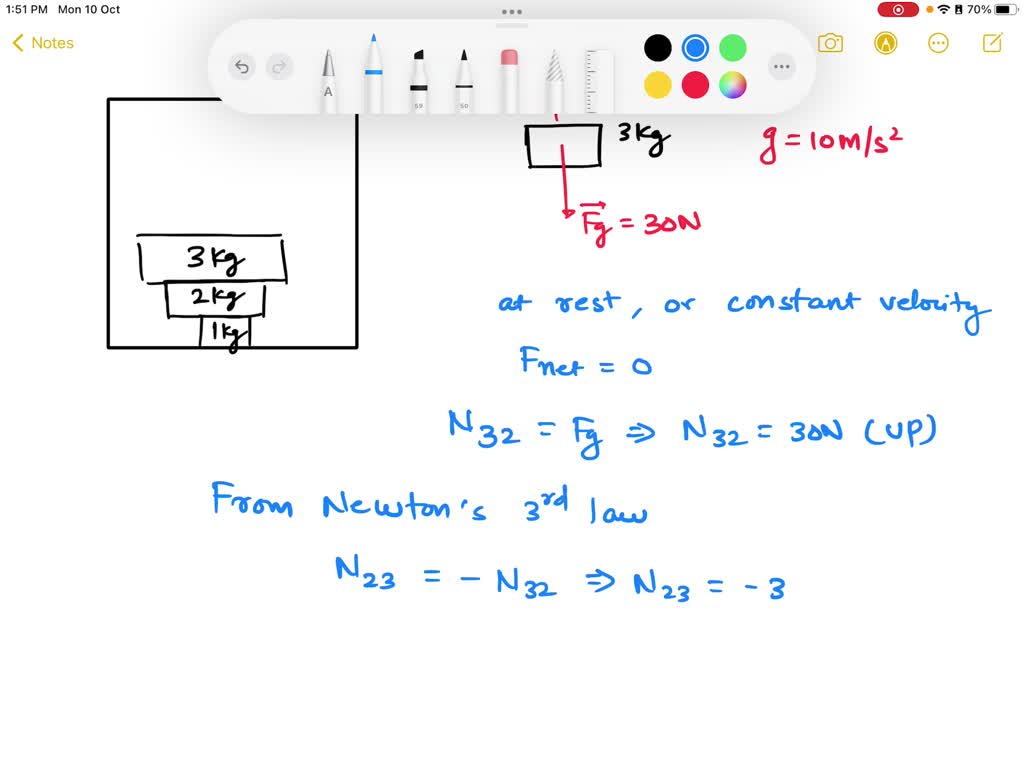 1:51 PM Mon 10 Oct 70%
Notes
A 59 50
3kg
g = 10m/s²
Fg = 30N
3kg
2kg
1kg
at rest, or constant velocity
Fnet = 0
N32 = Fg ⇒ N32 = 30N (UP)
From Newton's 3rd law
N23 = - N32 ⇒ N23 = - 3